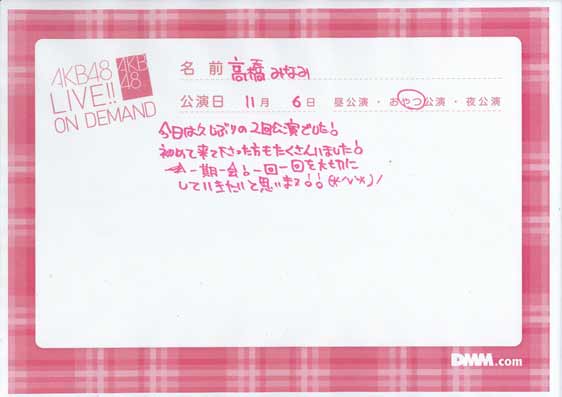 AKB48
LIVE!!
ON DEMAND
AKB
48
名 前 高橋みなみ
公演日 11月 6日 昼公演・おやつ公演・夜公演
今日は久しぶりの2回公演でした!
初めて来て下さった方もたくさんいました!
一期一会!一回一回を大切に
していきたいと思いまる!!(*^v^*)/
DMM.com